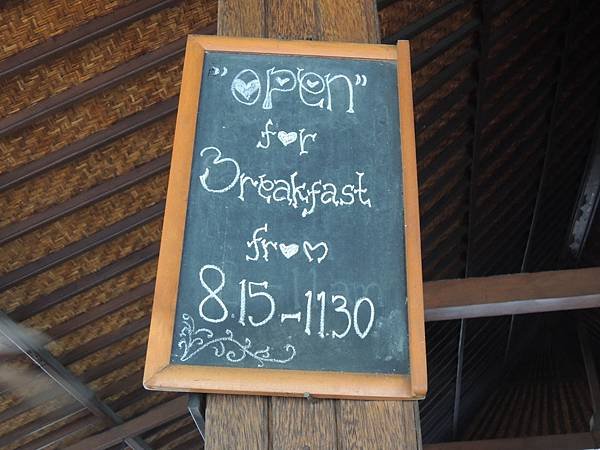 "OPEN"
for
Breakfast
from
8.15-11.30